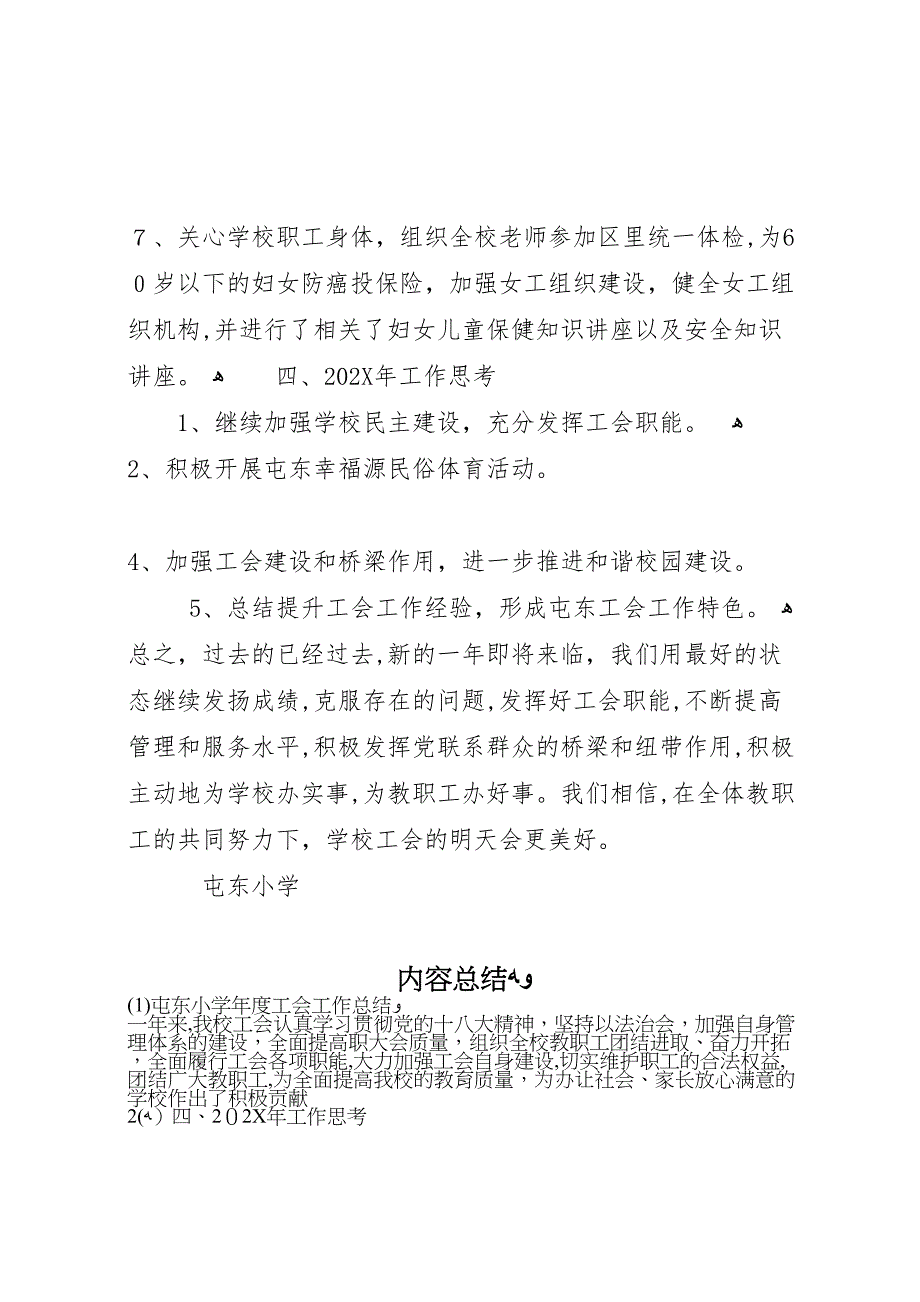 ７、关心学校职工身体，组织全校老师参加区里统一体检,为6
０岁以下的妇女防癌投保险，加强女工组织建设，健全女工组
织机构,并进行了相关了妇女儿童保健知识讲座以及安全知识
讲座。 ﻫ 四、202X年工作思考
1、继续加强学校民主建设，充分发挥工会职能。 ﻫ
2、积极开展屯东幸福源民俗体育活动。
4、加强工会建设和桥梁作用，进一步推进和谐校园建设。
5、总结提升工会工作经验，形成屯东工会工作特色。 ﻫ
总之，过去的已经过去,新的一年即将来临，我们用最好的状
态继续发扬成绩,克服存在的问题,发挥好工会职能,不断提高
管理和服务水平,积极发挥党联系群众的桥梁和纽带作用,积极
主动地为学校办实事,为教职工办好事。我们相信,在全体教职
工的共同努力下，学校工会的明天会更美好。
屯东小学
内容总结ﻪﻭ
(1)屯东小学年度工会工作总结ﻭ
一年来,我校工会认真学习贯彻党的十八大精神，坚持以法治会，加强自身管
理体系的建设，全面提高职大会质量，组织全校教职工团结进取、奋力开拓
，全面履行工会各项职能,大力加强工会自身建设,切实维护职工的合法权益,
团结广大教职工,为全面提高我校的教育质量，为办让社会、家长放心满意的
学校作出了积极贡献
2(ﻪ）四、2０2X年工作思考